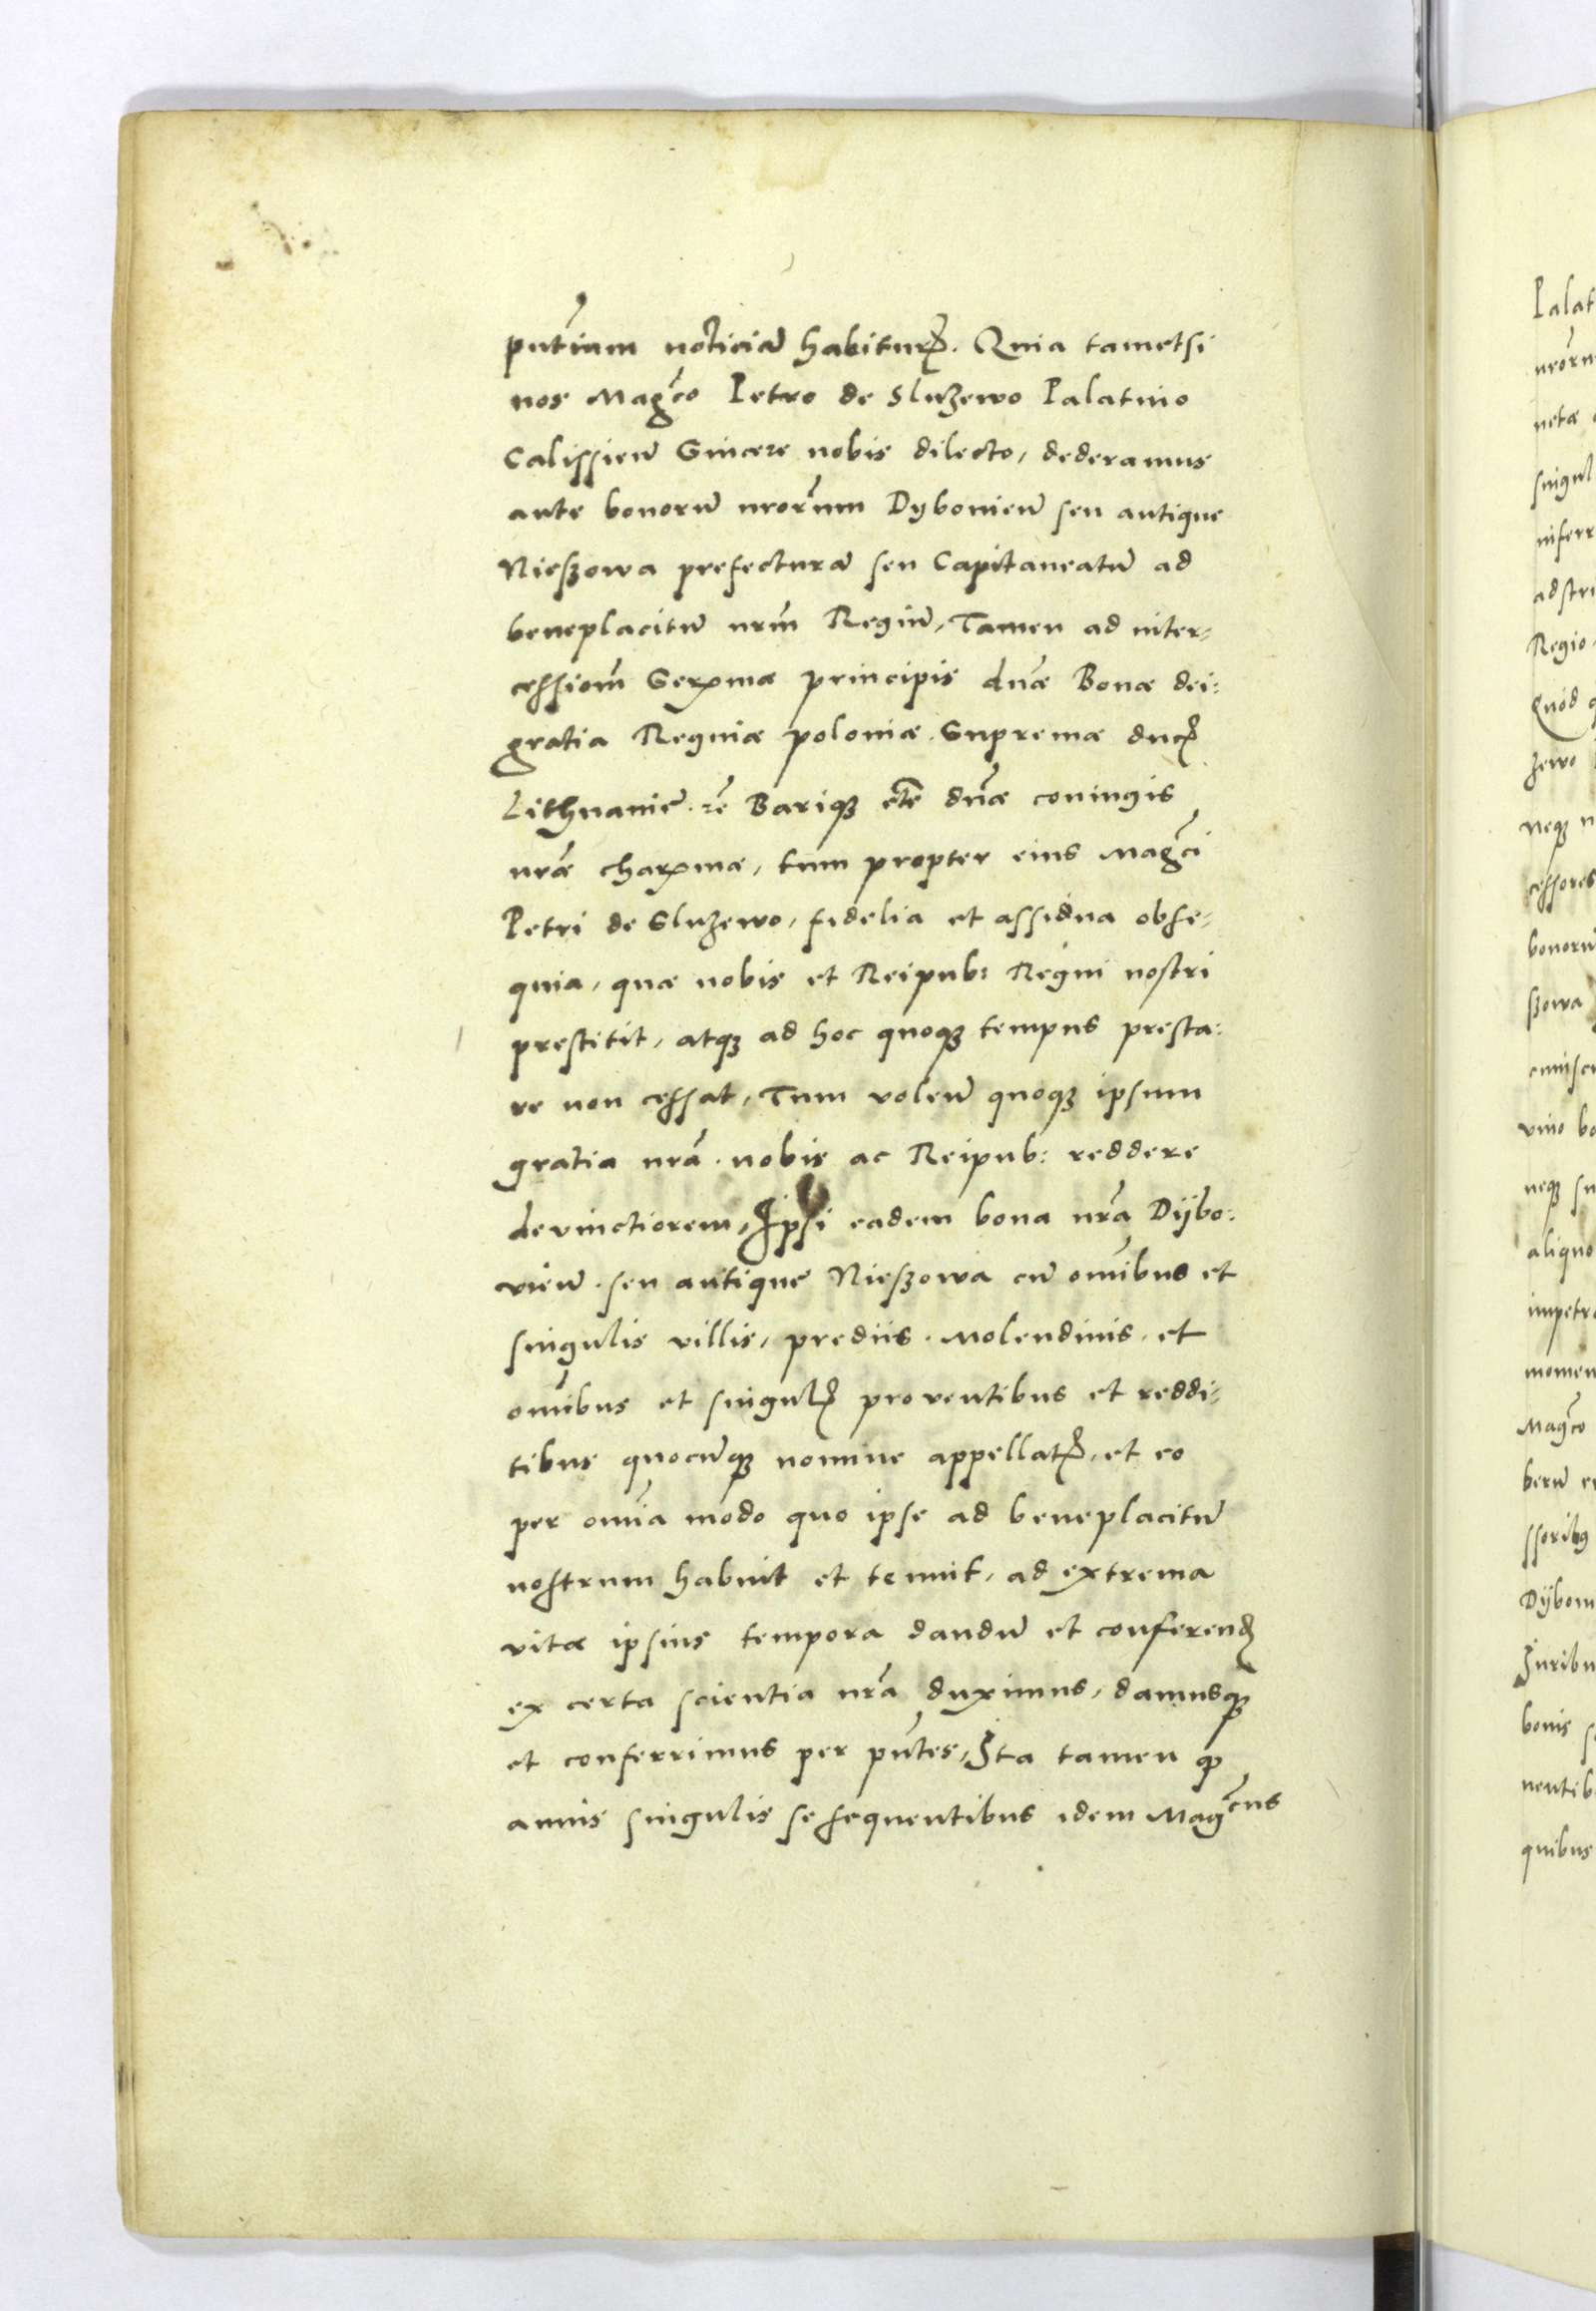 pñtium noticiã habiturꝭ. Quia tametsi
nos Magco Petro de Sluzewo Palatino
Calissien̄ Sincere nobis dilecto, dederamus
ante bonorũ nrorum Dybonien̄ seu antique
Nieszowa prefecturã seu Capitaneatũ ad
beneplacitũ nrm̃ Regiũ, Tamen ad inter-
cessiom̃ Serxmæ principis dnæ Bonæ dei:
gratia Reginæ poloniæ. Supremæ ducꝭ
Lithuaniæ. rẽ Bariqꝫ etc̃ dnæ coniugis
nræ charxmæ, tum propter eius Magci
Petri de Sluzewo, fidelia et assidua obse-
quia, quæ nobis et Reipub: Regni nostri
prestitit, atqꝫ ad hoc quoqꝫ tempus presta:
re non cessat, Tum volen̄ quoqꝫ ipsum
gratia nrã. nobis ac Reipub: reddere
devinctiorem, Ipsi eadem bona nrã Dÿbo:
vien̄. seu antique Nieszowa cũ omĩbus et
singulis villis, prediis. Molendinis, et
omĩbus et singulꝭ proventibus et reddi-
tibus quocũqꝫ nomine appellatꝭ, et eo
per omĩa modo quo ipse ad beneplacitũ
nostrum habuit et tenuit, ad extrema
vitæ ipsius tempora dandũ et conferendꝭ
ex certa scientia nrã duximus, damusqꝫ
et conferrimus per pñtes, Ita tamen qꝫ
annis singulis se sequentibus idem Magcus
Palat
netæ
singul
inferr
adstri
Regio
Quod
zewo
neqꝫ
cessores
bonorũ
szowa
vino bo
neqꝫ su
aliquo
impetra
momen
Magco
Dÿbon
Juribu
bonis
nentib
quibus